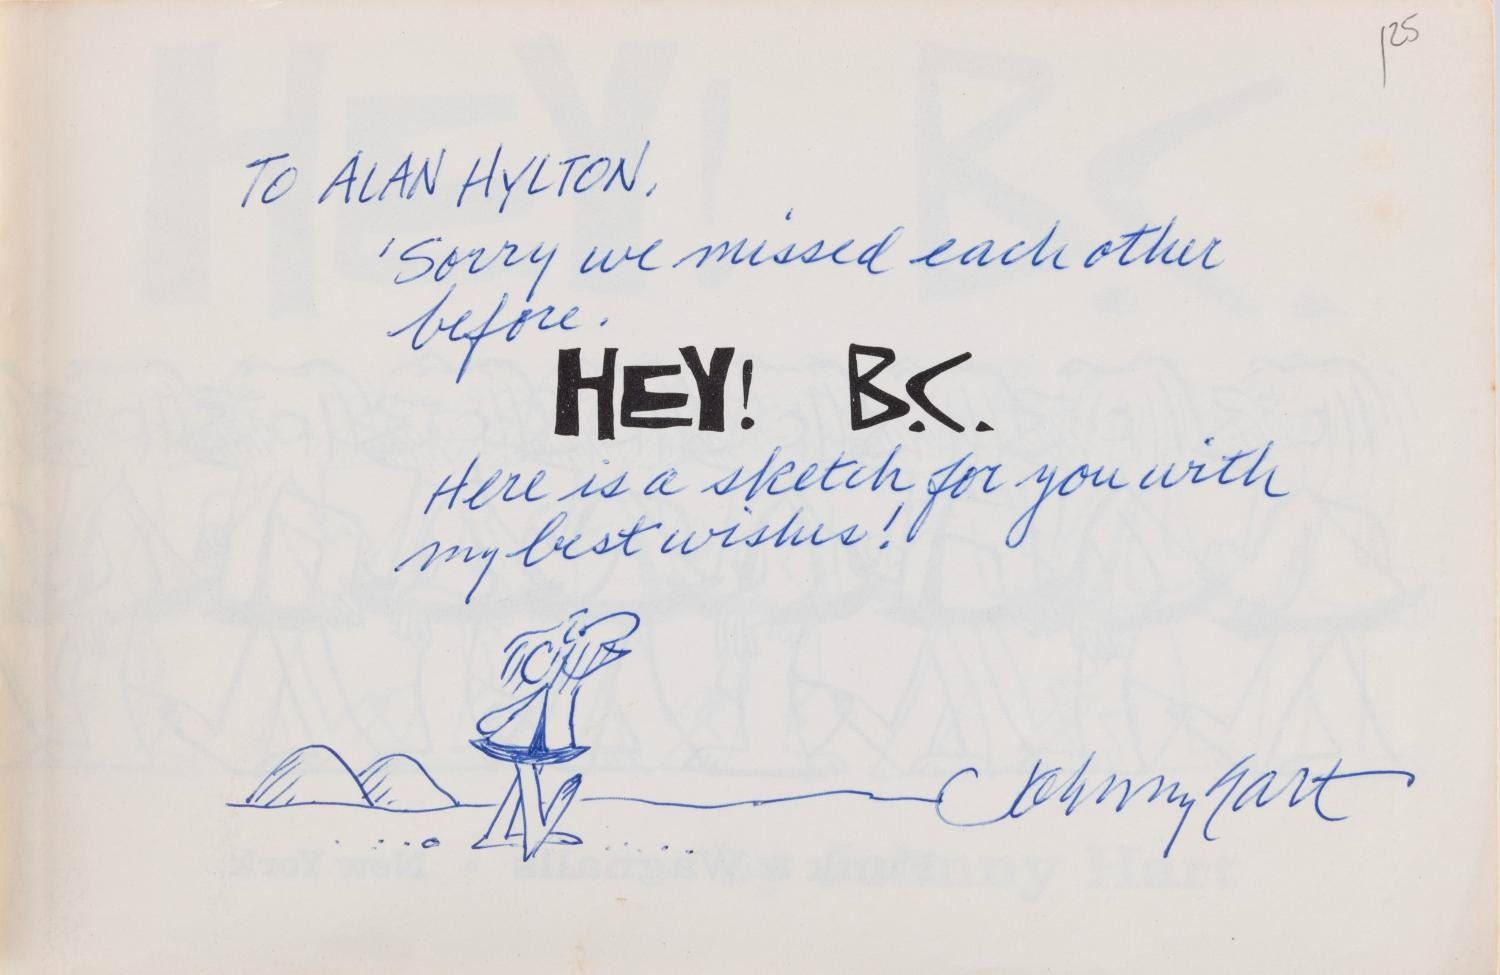 125
TO ALAN HYLTON,
'Sorry we missed each other
before.
HEY! B.C.
Here is a sketch for you with
my best wishes!
Johnny Hart
Funk & Wagnalls • New York